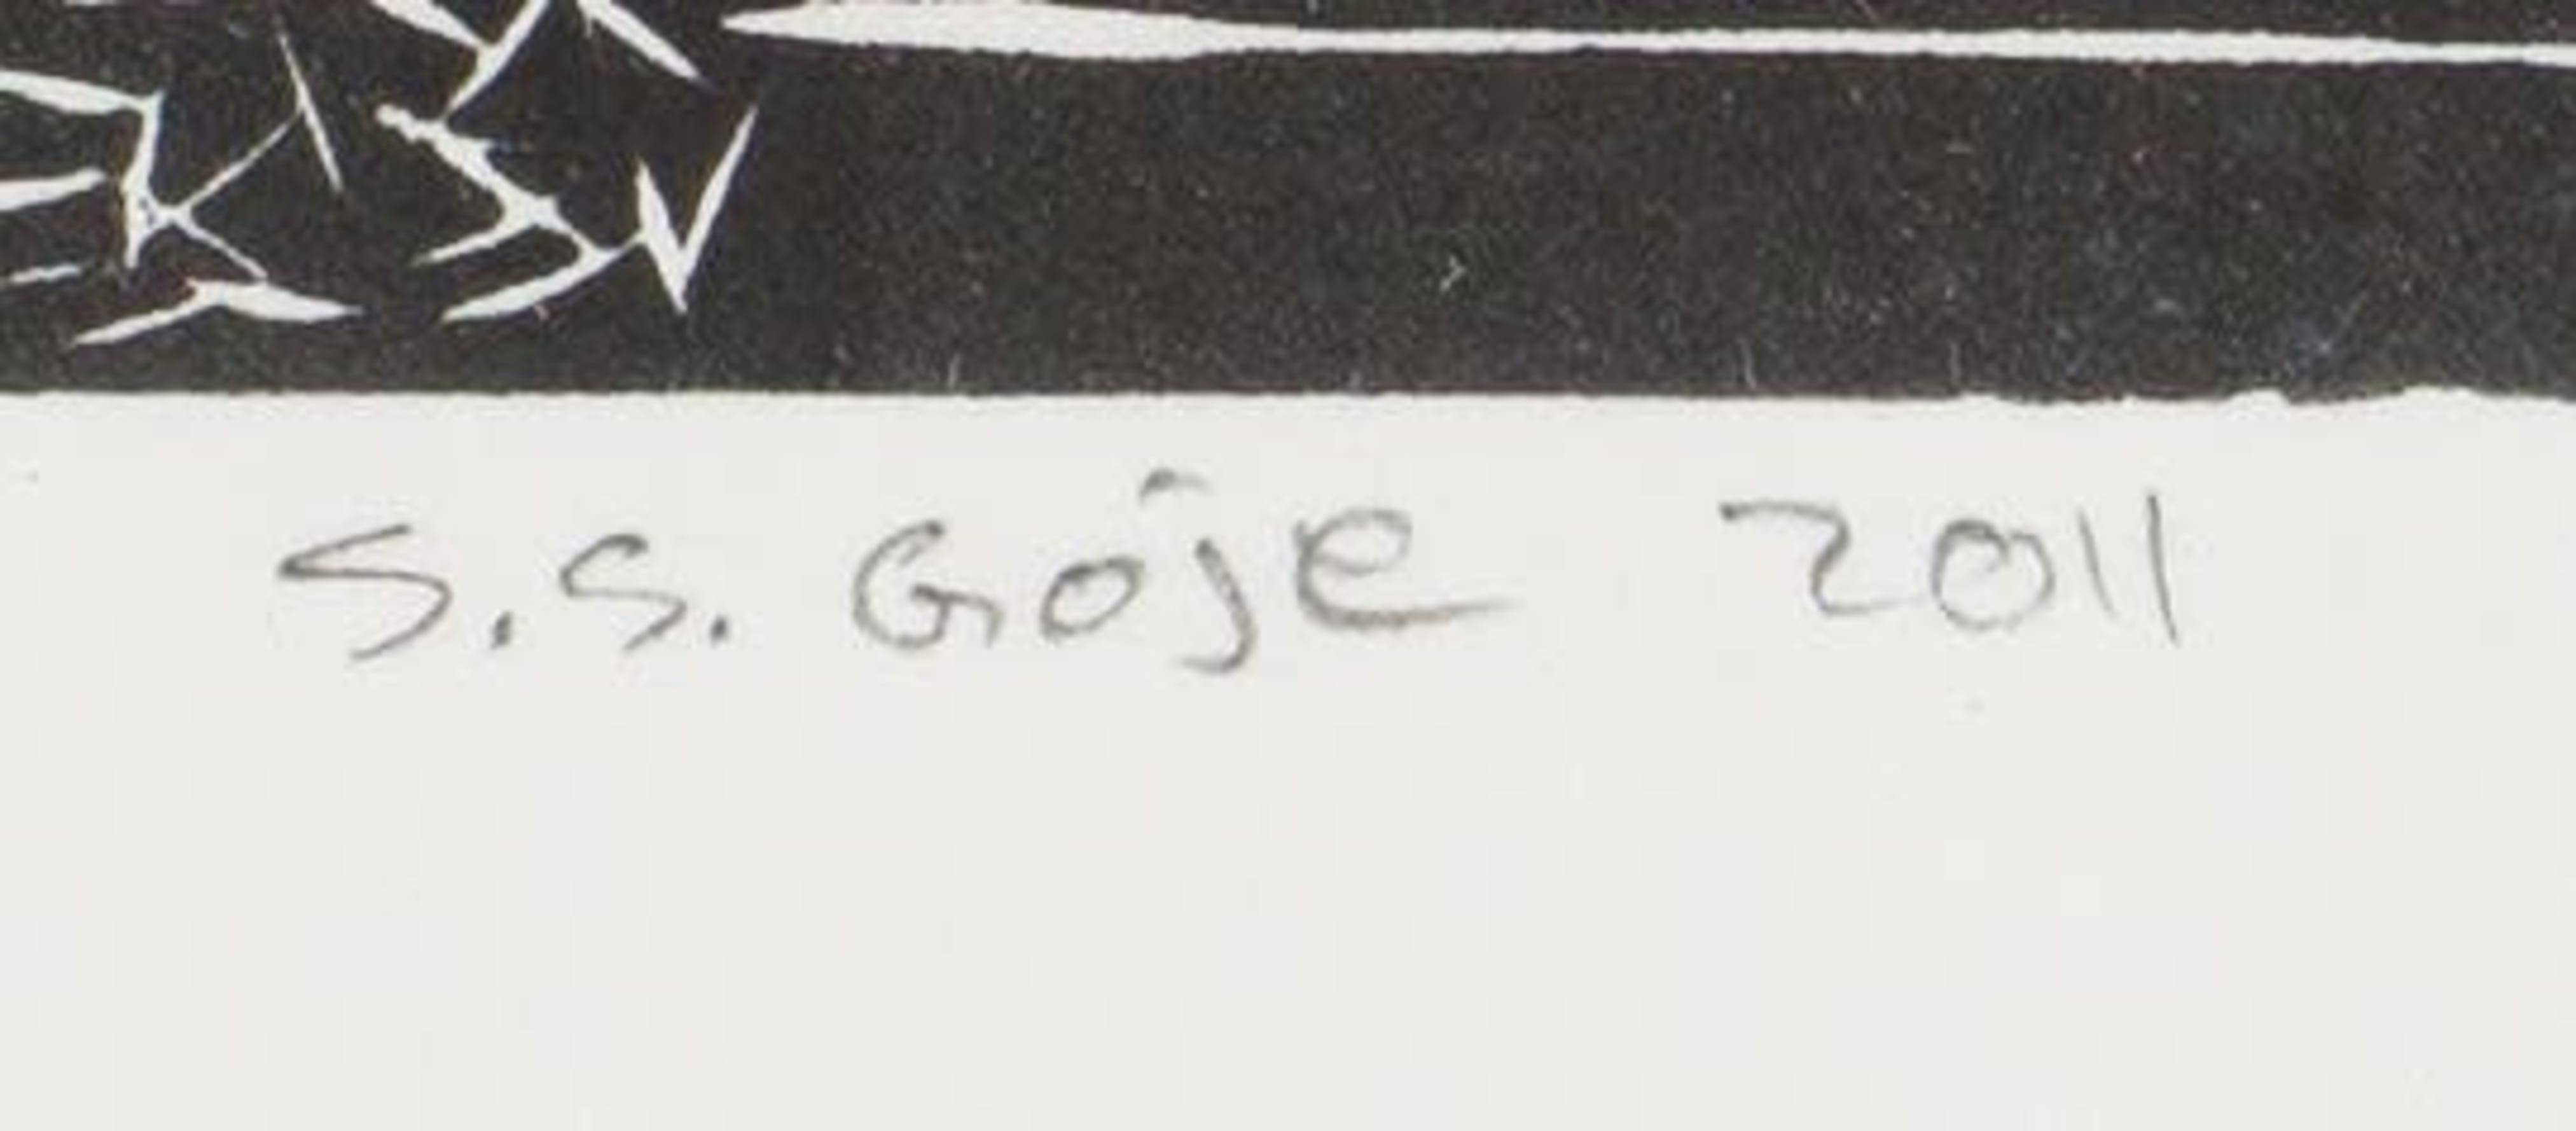 S.S. Goje 2011